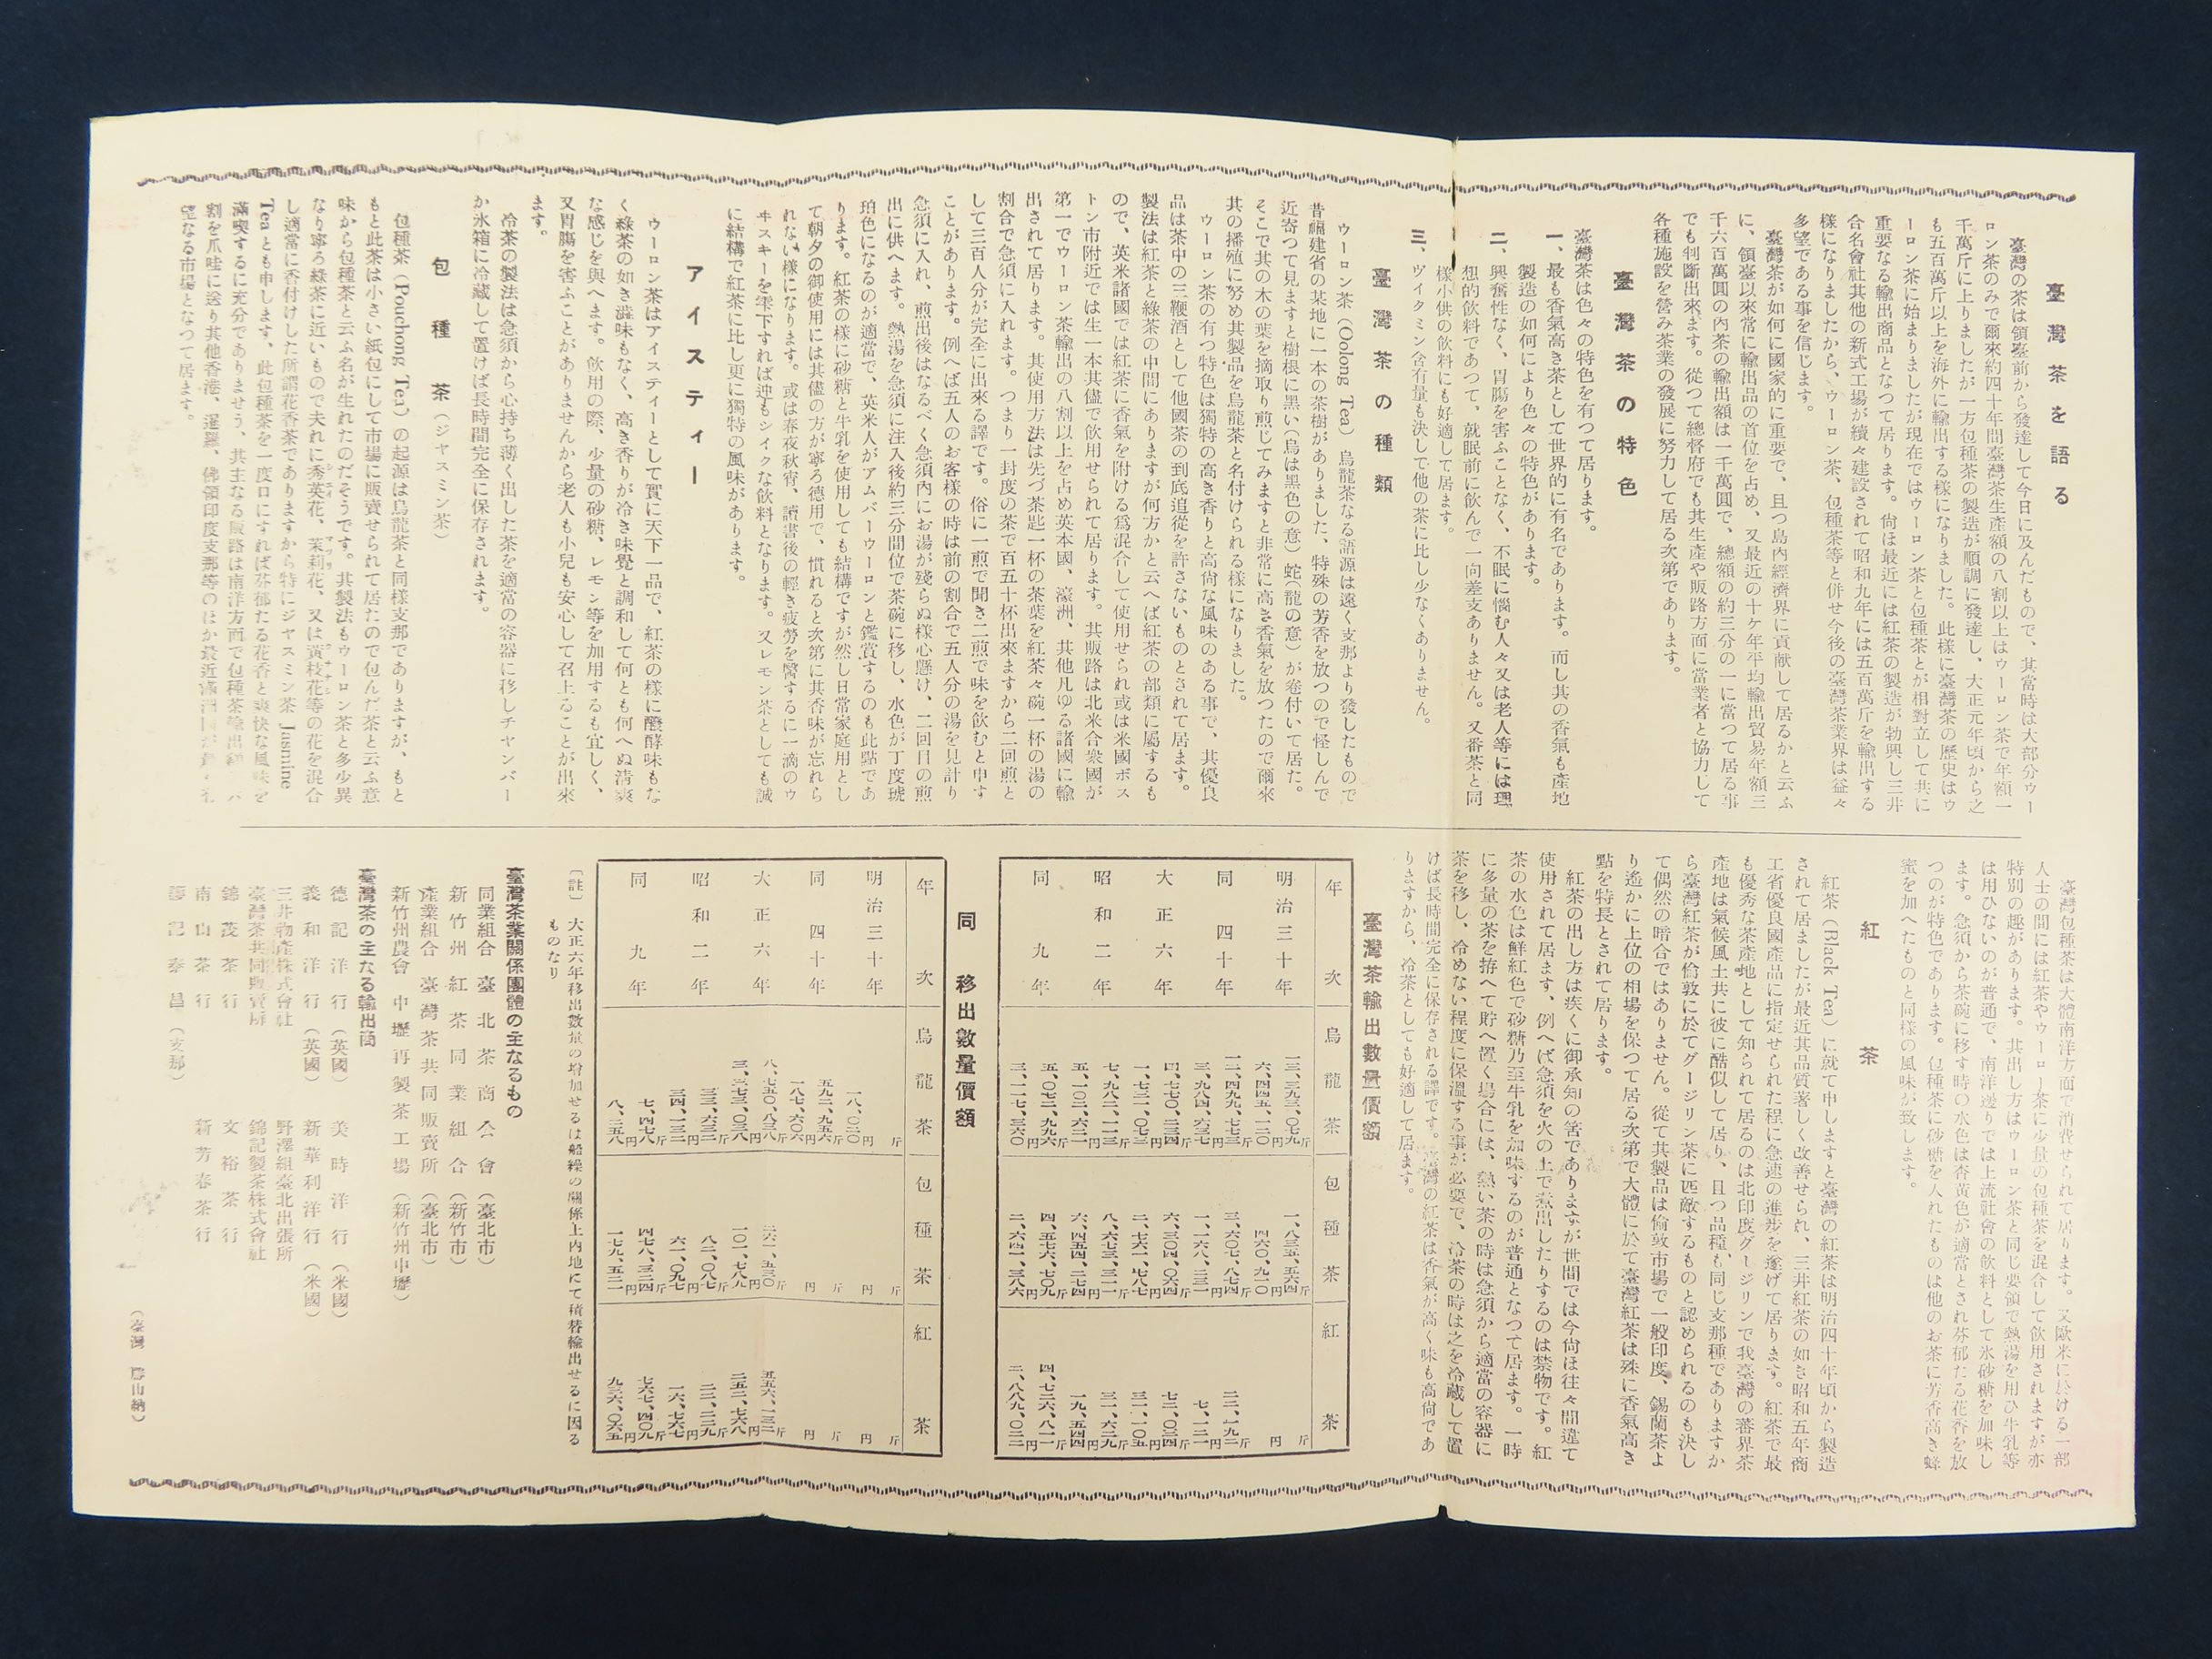 臺灣茶を語る
臺灣の茶は領臺前から發達して今日に及んだもので、其當時は大部分ウー
ロン茶のみで爾來約四十年間臺灣茶生產額の八割以上はウーロン茶で年額一
千萬斤に上りましたが一方包種茶の製造が順調に發達し、大正元年頃から之
も五百萬斤以上を海外に輸出する樣になりました。此樣に臺灣茶の歷史はウ
ーロン茶に始まりましたが現在ではウーロン茶と包種茶とが相對立して共に
重要なる輸出商品となつて居ります。尙ほ最近には紅茶の製造が勃興し三井
合名會社其他の新式工場が續々建設されて昭和九年には五百萬斤を輸出する
樣になりましたから、ウーロン茶、包種茶等と併せ今後の臺灣茶業界は益々
多望である事を信じます。
臺灣茶が如何に國家的に重要で、且つ島內經濟界に貢献して居るかと云ふ
に、領臺以來常に輸出品の首位を占め、又最近の十ケ年平均輸出貿易年額三
千六百萬圓の內茶の輸出額は一千萬圓で、總額の約三分の一に當つて居る事
でも判斷出來ます。從つて總督府でも其生產や販路方面に當業者と協力して
各種施設を營み茶業の發展に努力して居る次第であります。
臺灣茶の特色
臺灣茶は色々の特色を有つて居ります。
一、最も香氣高き茶として世界的に有名であります。而し其の香氣も產地
製造の如何により色々の特色があります。
二、興奮性なく、胃腸を害ふことなく、不眠に惱む人々又は老人等には理
想的飮料であつて、就眠前に飮んで一向差支ありません。又番茶と同
樣小供の飮料にも好適して居ます。
三、ヴイタミン含有量も決して他の茶に比し少なくありません。
臺灣茶の種類
ウーロン茶(Oolong Tea)烏龍茶なる語源は遠く支那より發したもので
昔福建省の某地に一本の茶樹がありました、特殊の芳香を放つので怪しんで
近寄つて見ますと樹根に黑い(烏は黑色の意)蛇(龍の意)が卷付いて居た。
そこで其の木の葉を摘取り煎じてみますと非常に高き香氣を放つたので爾來
其の播殖に努め其製品を烏龍茶と名付けられる樣になりました。
ウーロン茶の有つ特色は獨特の高き香りと高尙な風味のある事で、共優良
品は茶中の三鞭酒として他國茶の到底追從を許さないものとされて居ます。
製法は紅茶と綠茶の中間にありますが何方かと云へば紅茶の部類に屬するも
ので、英米諸國では紅茶に香氣を附ける爲混合して使用せられ或は米國ボス
トン市附近では生一本其儘で飮用せられて居ります。其販路は北米合衆國が
第一でウーロン茶輸出の八割以上を占め英本國、濠洲、其他凡ゆる諸國に輸
出されて居ります。其使用方法は先づ茶匙一杯の茶葉を紅茶々碗一杯の湯の
割合で急須に入れます。つまり一封度の茶で百五十杯出來ますから二回煎と
して三百人分が完全に出來る譯です。俗に一煎で聞き二煎で味を飮むと申す
ことがあります。例へば五人のお客樣の時は前の割合で五人分の湯を見計り
急須に入れ、煎出後はなるべく急須內にお湯が殘らぬ樣心懸け、二回目の煎
出に供へます。熱湯を急須に注入後約三分間位で茶碗に移し、水色が丁度琥
珀色になるのが適當で、英米人がアムバーウーロンと鑑賞するのも此點であ
ります。紅茶の樣に砂糖と牛乳を使用しても結構ですが然し日常家庭用とし
て朝夕の御使用には其儘の方が寧ろ德用で、慣れると次第に其香味が忘れら
れない樣になります。或は春夜秋宵、讀書後の輕き疲勞を醫するに一滴のウ
ヰスキーを雫下すれば迚もシイクな飮料となります。又レモン茶としても誠
に結構で紅茶に比し更に獨特の風味があります。
アイスティー
ウーロン茶はアイスティーとして實に天下一品で、紅茶の樣に醱酵味もな
く綠茶の如き澁味もなく、高き香りが冷き味覺と調和して何とも何へぬ淸爽
な感じを與へます。飮用の際、少量の砂糖、レモン等を加用するも宜しく、
又胃腸を害ふことがありませんから老人も小兒も安心して召上ることが出來
ます。
冷茶の製法は急須から心持ち薄く出した茶を適當の容器に移しチヤンバー
か氷箱に冷藏して置けば長時間完全に保存されます。
包種茶(ジヤスミン茶)
包種茶(Pouchong Tea)の起源は烏龍茶と同樣支那でありますが、もと
もと此茶は小さい紙包にして市場に販賣せられて居たので包んだ茶と云ふ意
味から包種茶と云ふ名が生れたのだそうです。其製法もウーロン茶と多少異
なり寧ろ綠茶に近いもので夫れに秀英花、茉莉花、又は黃枝花等の花を混合
し適當に香付けした所謂花香茶でありますから特にジヤスミン茶 Jasmine
Tea とも申します。此包種茶を一度口にすれば芬郁たる花香と爽快な風味を
滿喫するに充分でありませう、其主なる販路は南洋方面で包種茶輸出
割を爪哇に送り其他香港、暹羅、佛領印度支那等のほか最近滿洲國が
なる市場となつて居ます。
臺灣包種茶は大體南洋方面で消費せられて居ります。又歐米に於ける一部
人士の間には紅茶やウーロン茶に少量の包種茶を混合して飮用されますが亦
特別の趣があります。其出し方はウーロン茶と同じ要領で熱湯を用ひ牛乳等
は用ひないのが普通で、南洋邊りでは上流社會の飮料として氷砂糖を加味し
ます。急須から茶碗に移す時の水色は杏黃色が適當とされ芬郁たる花香を放
つのが特色であります。包種茶に砂糖を入れたものは他のお茶に芳香高き蜂
蜜を加へたものと同樣の風味が致します。
紅茶
紅茶(Black Tea)に就て申しますと臺灣の紅茶は明治四十年頃から製造
されて居ましたが最近其品質著しく改善せられ、三井紅茶の如き昭和五年商
工省優良國產品に指定せられた程に急速の進步を遂げて居ります。紅茶で最
も優秀な茶產地として知られて居るのは北印度ダージリンで我臺灣の蕃界茶
產地は氣候風土共に彼に酷似して居り、且つ品種も同じ支那種でありますか
ら臺灣紅茶が倫敦に於てダージリン茶に匹敵するものと認められるのも決し
て偶然の暗合ではありません。從て其製品は倫敦市場で一般印度、錫蘭茶よ
り遙かに上位の相場を保つて居る次第で大體に於て臺灣紅茶は殊に香氣高き
點を特長とされて居ります。
紅茶の出し方は疾くに御承知の筈でありますが世間では今尙ほ往々間違て
使用されて居ます、例へば急須を火の上で煮出したりするのは禁物です。紅
茶の水色は鮮紅色で砂糖乃至牛乳を加味するのが普通となつて居ます。一時
に多量の茶を拵へて貯へ置く場合には、熱い茶の時は急須から適當の容器に
茶を移し、冷めない程度に保溫する事が必要で、冷茶の時は之を冷藏して置
けば長時間完全に保存される譯です。臺灣の紅茶は香氣が高く味も高尙であ
りますから、冷茶としても好適して居ます。
臺灣茶輸出數量價額
年次 烏龍茶 包種茶 紅茶
明治三十年 一三、三九三、〇七九斤 一、八三五、五六四斤 斤
六、四四五、一二〇円 四六〇、九一〇円 円
同四十年 一二、四九九、七七三斤 三、六〇七、八七四斤 二二、一九二斤
三、九八四、六三七円 一、一六八、二三一円 七、一二一円
大正六年 四、七七〇、二三四斤 六、三〇四、〇六四斤 七二、〇三四斤
一、七三一、〇七三円 二、七六一、七八七円 三一、一〇五円
昭和二年 七、九八二、一一三斤 八、六七三、三一一斤 三一、六二九斤
五、一〇二、六二二円 六、四五四、二七四円 一九、五四四円
同九年 五、〇七二、九九六斤 四、五七六、七〇九斤 四、七二六、八一一斤
三、一一七、三六〇円 二、六四一、三八六円 二、八八九、〇二二円
同 移出數量價額
年次 烏龍茶 包種茶 紅茶
明治三十年 斤 斤 斤
一八、〇二〇円 円 円
同四十年 五九二、九五六斤 斤 斤
一八七、六〇六円 円 円
大正六年 八、七五〇、八三八斤 二六一、五三〇斤 五五六、一三二斤
三、三七三、〇三八円 一〇一、七八八円 二五二、七六八円
昭和二年 三三、六三二斤 八二、〇八七斤 二二、二二九斤
二四、一三二円 六一、〇九七円 一六、七六七円
同九年 七、四七八斤 四七八、三二四斤 七六七、四〇九斤
八、二五八円 一七九、五二一円 九三六、〇六五円
〔註〕大正六年移出數量の增加せるは船繰の關係上內地にて積替輸出せるに因る
ものなり
臺灣茶業關係團體の主なるもの
同業組合 臺北茶商公會(臺北市)
新竹州紅茶同業組合(新竹市)
產業組合 臺灣茶共同販賣所(臺北市)
新竹州農會 中壢再製茶工場(新竹州中壢)
臺灣茶の主なる輸出商
德記洋行(英國) 美時洋行(米國)
義和洋行(英國) 新華利洋行(米國)
三井物產株式會社 野澤組臺北出張所
臺灣茶共同販賣所 錦記製茶株式會社
錦茂茶行 文裕茶行
南山茶行 新芳春茶行
記泰昌(支那)
(臺灣 勝山納)